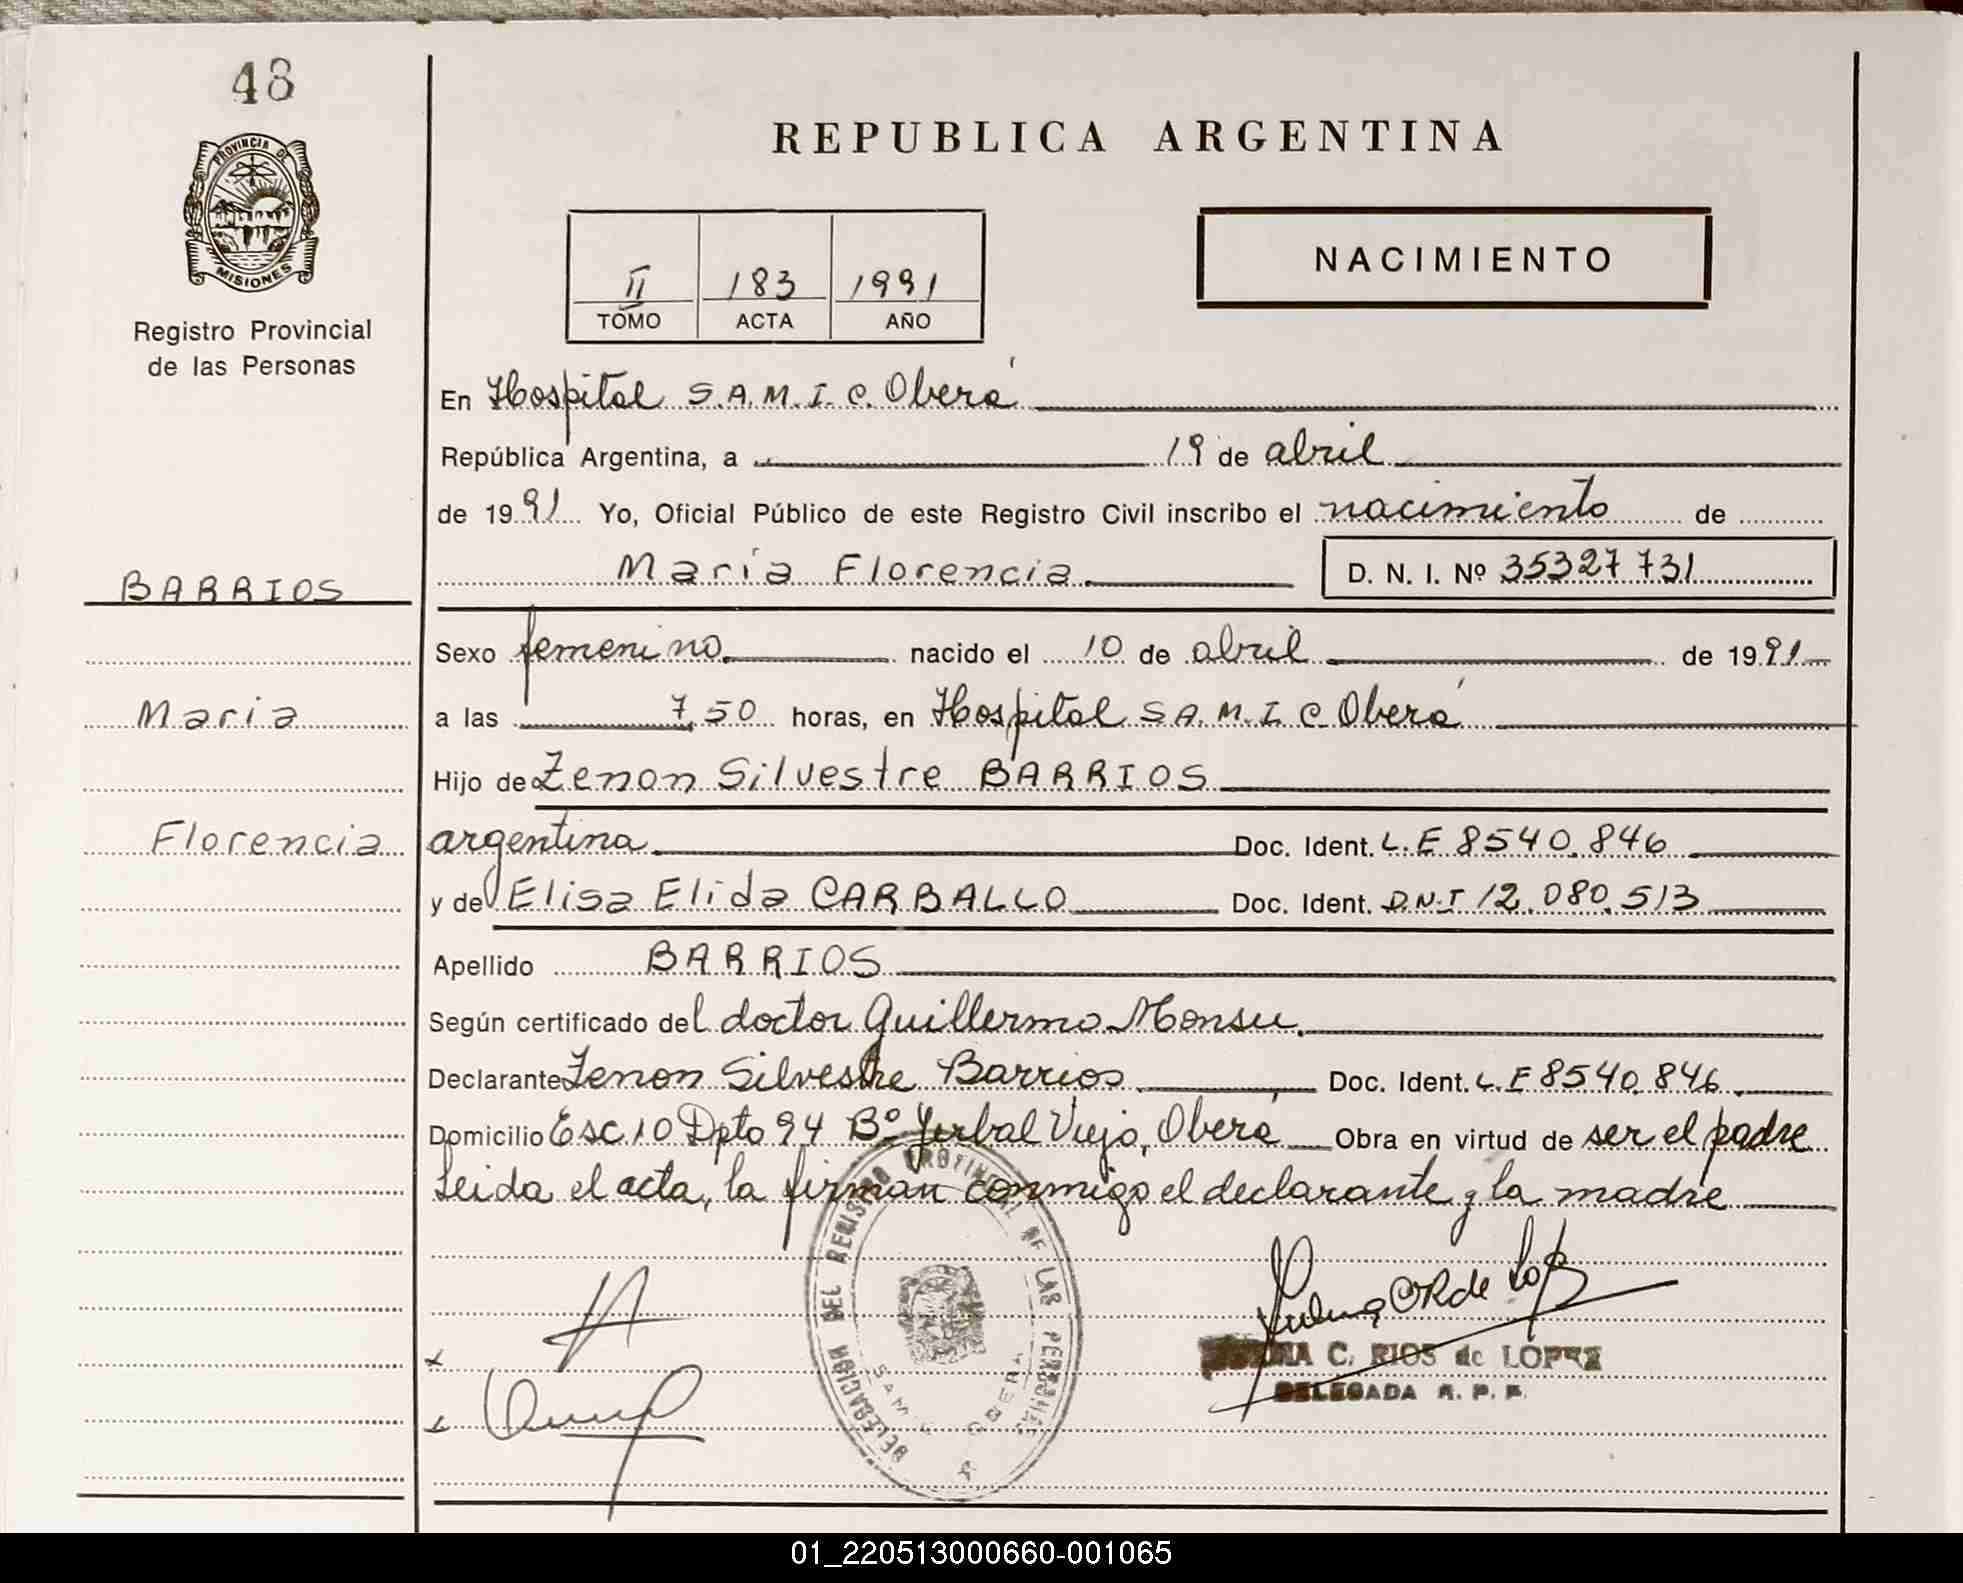 48
PROVINCIA DE
MISIONES
Registro Provincial
de las Personas
REPUBLICA ARGENTINA
II 183 1991
TOMO ACTA AÑO
NACIMIENTO
En Hospital S.A.M.I.C. Oberá
República Argentina, a 19 de abril
de 1991 Yo, Oficial Público de este Registro Civil inscribo el nacimiento de
BARRIOS
María Florencia D. N. I. Nº 35327731
Sexo femenino nacido el 10 de abril de 1991
Maria
a las 7,50 horas, en Hospital S.A.M.I.C. Oberá
Hijo de Zenon Silvestre BARRIOS
Florencia
argentina Doc. Ident. L.E 8540.846
y de Elisa Elida CARBALLO Doc. Ident. D.N.I 12.080.513
Apellido BARRIOS
Según certificado del doctor Guillermo Monsu.
Declarante Zenon Silvestre Barrios Doc. Ident. L.E 8540.846
Domicilio Esc 10 Dpto 94 Bº Yerbal Viejo, Oberá Obra en virtud de ser el padre
Leida el acta, la firman conmigo el declarante y la madre
DELEGACION DEL REGISTRO PROVINCIAL DE LAS PERSONAS
OBERA
C. RIOS de LOPEZ
DELEGADA R. P. P.
01_220513000660-001065